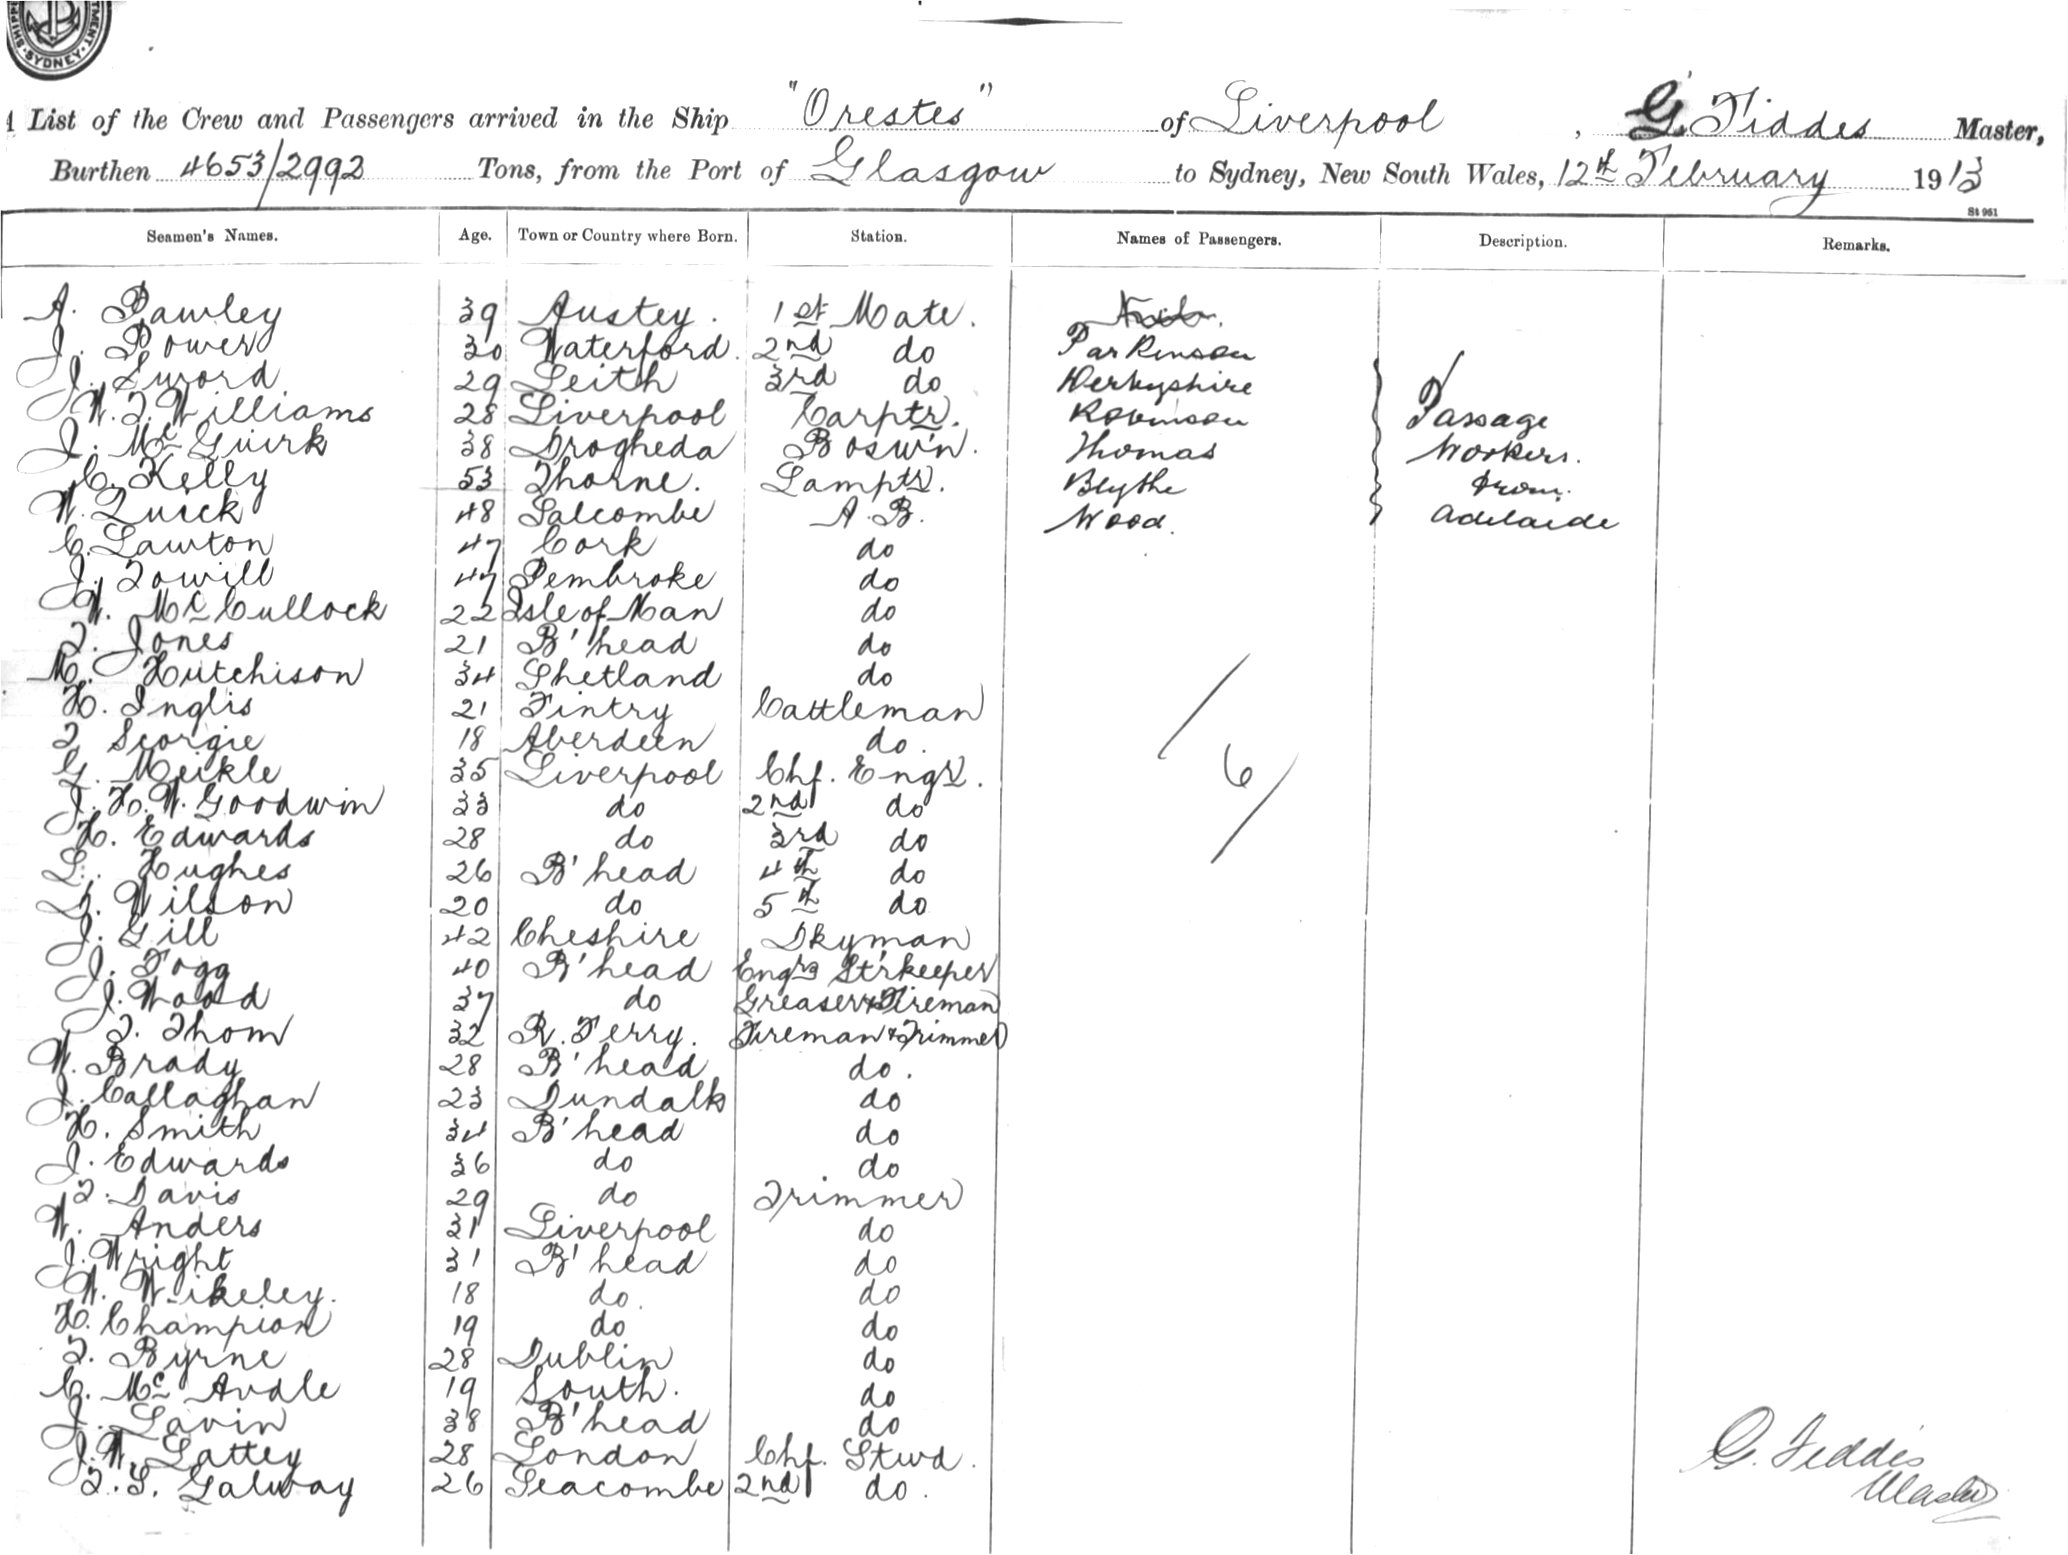 SYDNEY
A List of the Crew and Passengers arrived in the Ship "Orestes" of Liverpool, G. Fiddes Master,
Burthen 4653/2992 Tons, from the Port of Glasgow to Sydney, New South Wales, 12th February 1913
St 961
Seamen's Names. Age. Town or Country where Born. Station. Names of Passengers. Description. Remarks.
A. Pawley 39 Austey. 1st Mate.
J. Power 30 Waterford. 2nd do Parkinson
J. Sword 29 Leith 3rd do Derbyshire
W. T. Williams 28 Liverpool Carptr. Robinson Passage
J. McGuirk 38 Drogheda Boswn. Thomas Workers.
C. Kelly 53 Thorne. Lamptr. Blythe from
W. Quick 48 Salcombe A.B. Wood. Adelaide
C. Lawton 47 Cork do
J. Towill 47 Pembroke do
W. McCullock 22 Isle of Man do
T. Jones 21 B'head do
M. Hutchison 34 Shetland do
H. Inglis 21 Fintry Cattleman
T. Scorgie 18 Aberdeen do.
G. Meikle 35 Liverpool Chf. Engr. 6
J. H. W. Goodwin 33 do 2nd do
H. Edwards 28 do 3rd do
L. Hughes 26 B'head 4th do
D. Wilson 20 do 5th do
J. Gill 42 Cheshire Dkyman
J. Fogg 40 B'head Engrs Strkeeper
J. Wood 37 do Greaser & Fireman
T. Thom 32 R. Ferry. Fireman & Trimmer
W. Brady 28 B'head do.
J. Callaghan 23 Dundalk do
H. Smith 34 B'head do
J. Edwards 36 do do
T. Davis 29 do Trimmer
W. Anders 31 Liverpool do
J. Wright 31 B'head do
W. Wikeley. 18 do. do
H. Champion 19 do do
T. Byrne 28 Dublin do
C. Mc Ardle 19 Louth. do
J. Lavin 38 B'head do
J. W. Lattey 28 London Chf. Stwd. G. Fiddes
T. S. Galway 26 Seacombe 2nd do. Master